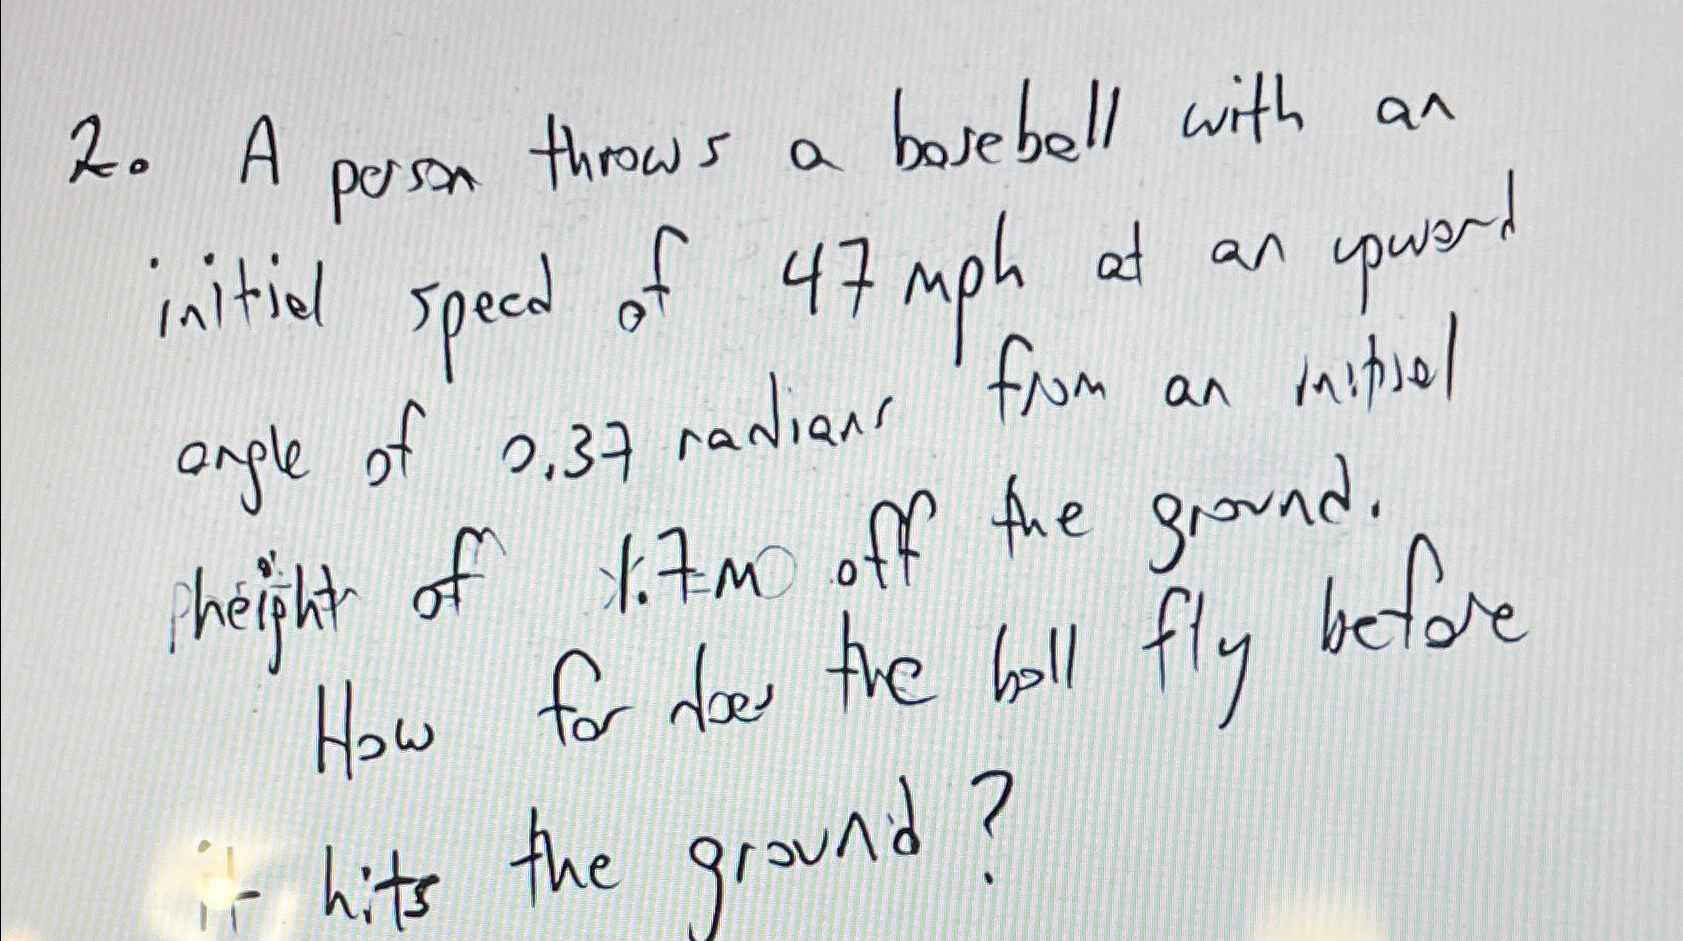 2. A person throws a baseball with an
initial speed of 47 mph at an upward
angle of 0.37 radians from an initial
height of 1.7m off the ground.
How far does the ball fly before
it hits the ground?